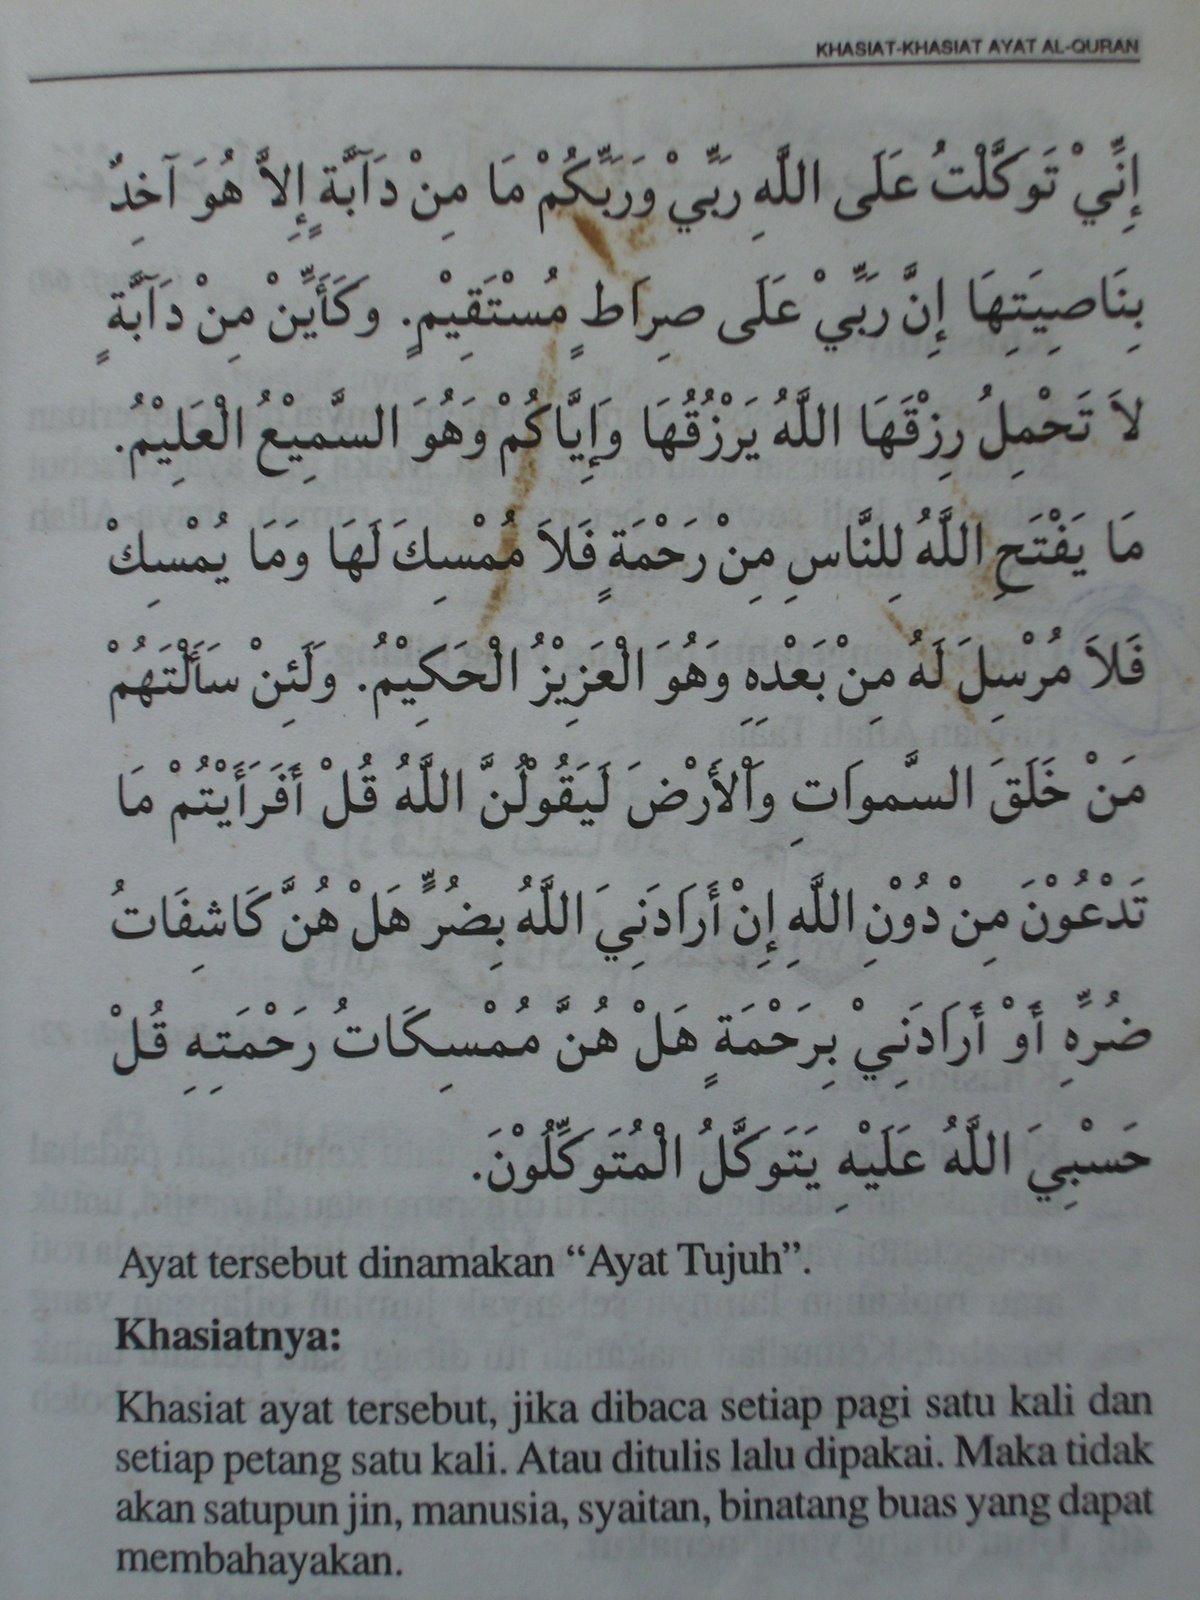 KHASIAT-KHASIAT AYAT AL-QURAN
إِنِّيْ تَوَكَّلْتُ عَلَى اللَّهِ رَبِّيْ وَرَبِّكُمْ مَا مِنْ دَآبَّةٍ إِلاَّ هُوَ آخِذٌ
بِنَاصِيَتِهَا إِنَّ رَبِّيْ عَلَى صِرَاطٍ مُسْتَقِيْمٍ. وَكَأَيِّنْ مِنْ دَآبَّةٍ
لاَ تَحْمِلُ رِزْقَهَا اللَّهُ يَرْزُقُهَا وَإِيَّاكُمْ وَهُوَ السَّمِيْعُ الْعَلِيْمُ.
مَا يَفْتَحِ اللَّهُ لِلنَّاسِ مِنْ رَحْمَةٍ فَلاَ مُمْسِكَ لَهَا وَمَا يُمْسِكْ
فَلاَ مُرْسِلَ لَهُ مِنْ بَعْدِهِ وَهُوَ الْعَزِيْزُ الْحَكِيْمُ. وَلَئِنْ سَأَلْتَهُمْ
مَنْ خَلَقَ السَّموَاتِ وَاْلأَرْضَ لَيَقُوْلُنَّ اللَّهُ قُلْ أَفَرَأَيْتُمْ مَا
تَدْعُوْنَ مِنْ دُوْنِ اللَّهِ إِنْ أَرَادَنِيَ اللَّهُ بِضُرٍّ هَلْ هُنَّ كَاشِفَاتُ
ضُرِّهِ أَوْ أَرَادَنِيْ بِرَحْمَةٍ هَلْ هُنَّ مُمْسِكَاتُ رَحْمَتِهِ قُلْ
حَسْبِيَ اللَّهُ عَلَيْهِ يَتَوَكَّلُ الْمُتَوَكِّلُوْنَ.
Ayat tersebut dinamakan “Ayat Tujuh”.
Khasiatnya:
Khasiat ayat tersebut, jika dibaca setiap pagi satu kali dan
setiap petang satu kali. Atau ditulis lalu dipakai. Maka tidak
akan satupun jin, manusia, syaitan, binatang buas yang dapat
membahayakan.